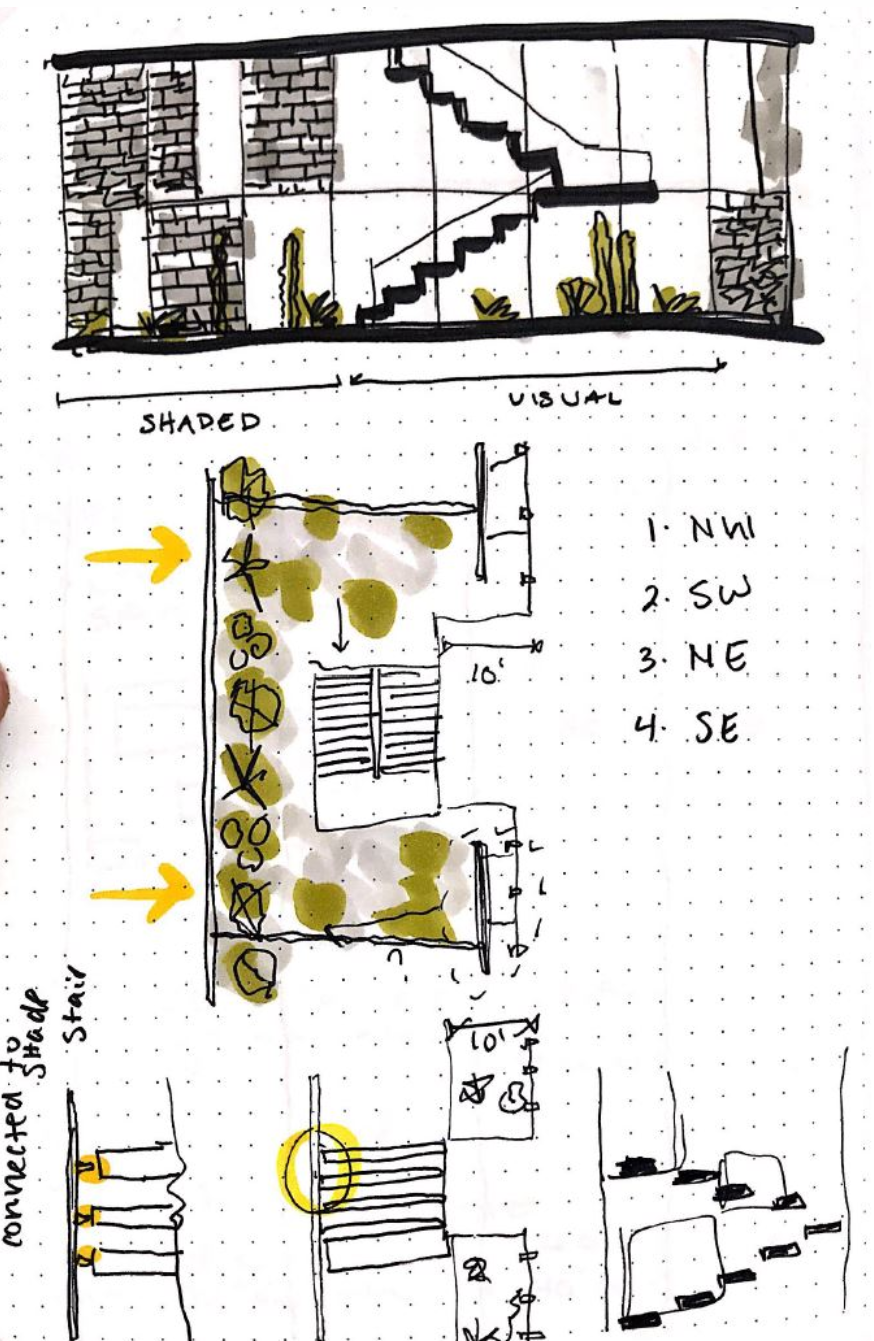 SHADED
VISUAL
1. NW
2. SW
3. NE
4. SE
10'
connected to
shade
Stair
10'